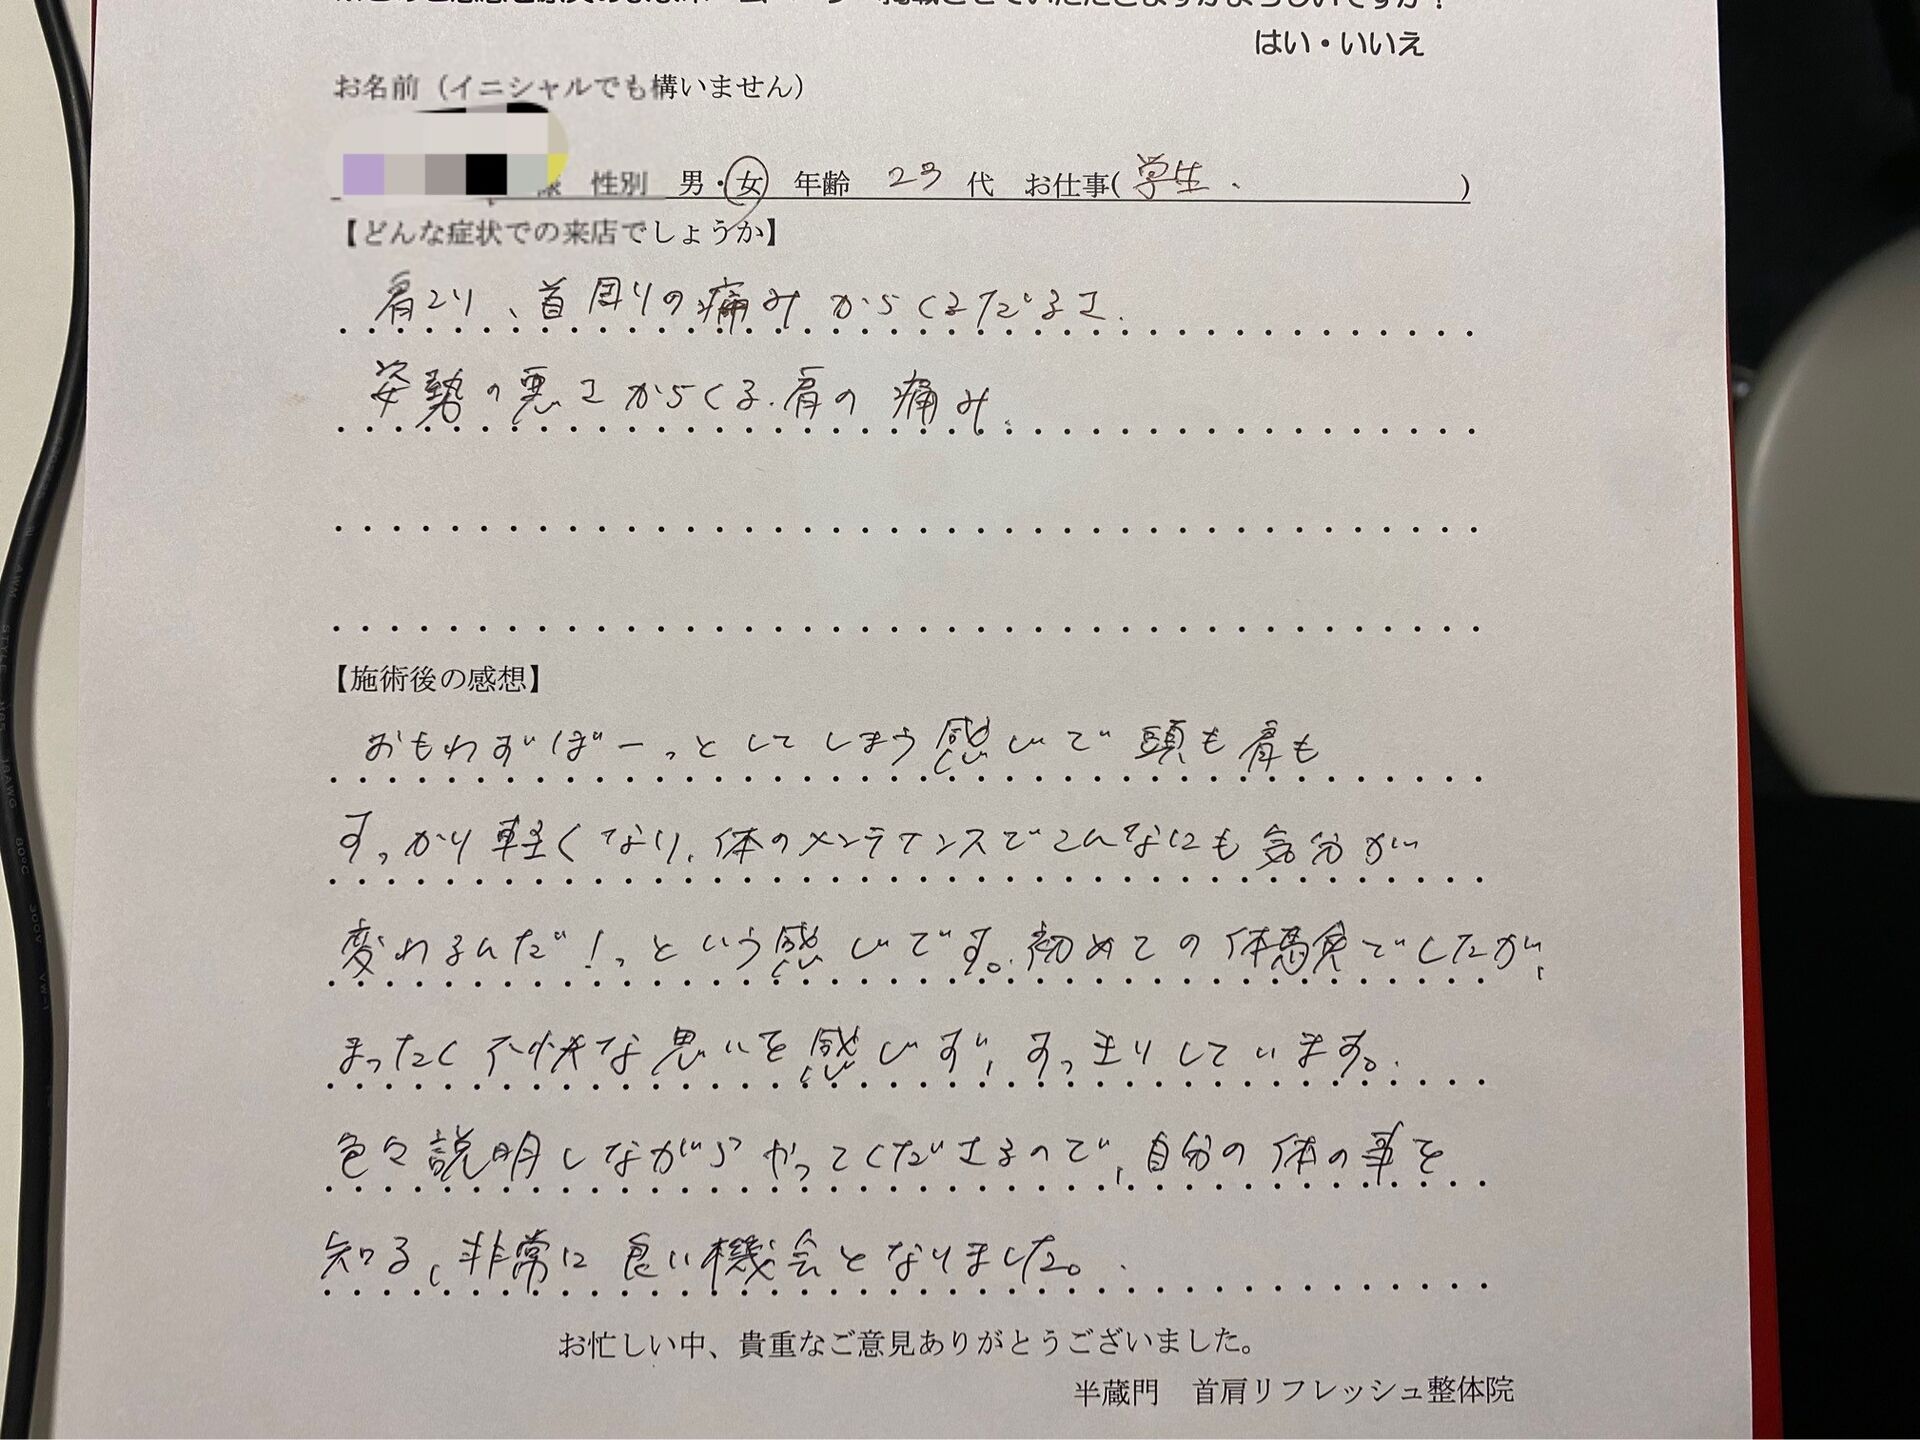 はい・いいえ
お名前（イニシャルでも構いません）
様 性別 男・女 年齢 23 代 お仕事(学生. )
【どんな症状での来店でしょうか】
肩こり、首周りの痛みからくるだるさ.
姿勢の悪さからくる.肩の痛み.
【施術後の感想】
おもわずぼーっとしてしまう感じで頭も肩も
すっかり軽くなり、体のメンテナンスでこんなにも気分が
変わるんだ！っという感じです。初めての体験でしたが、
まったく不快な思いを感じず、すっきりしています。
色々説明しながらやってくださるので、自分の体の事を
知る、非常に良い機会となりました。
お忙しい中、貴重なご意見ありがとうございました。
半蔵門 首肩リフレッシュ整体院